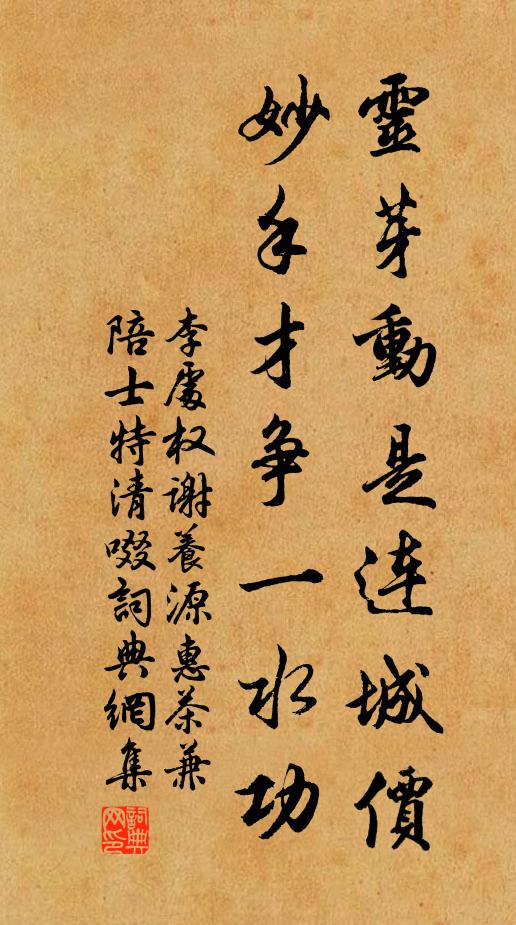 靈芽動是連城價
妙手才争一水功
李處权謝養源惠茶兼
陪士特清啜詞典網集
詞典网印